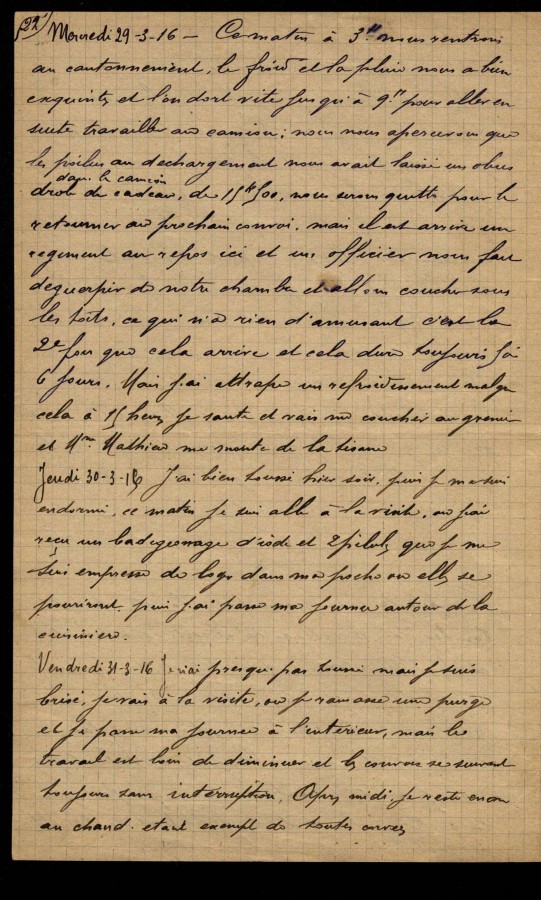 22
Mercredi 29-3-16 - Ce matin à 3h nous rentrons
au cantonnement, le froid et la pluie nous a bien
exquinté et l'on dort vite jusqu'à 9h pour aller en
suite travailler au camion; nous nous apercevons que
les poilus au dechargement nous avait laissé un obus
dans le camion
drole de cadeau, de 155h/00, nous serons quitte pour le
retourner au prochain convoi, mais il est arrivé un
regiment au repos ici et un officier nous fait
deguerpir de notre chambre et allons coucher sous
les toits, ce qui n'a rien d'amusant c'est la
2e fois que cela arrive et cela dure toujours 5 à
6 jours. Mais j'ai attrapé un refroidissement malgré
cela à 15 heures je saute et vais me coucher au grenier
et Mme Mathieu me monte de la tisane
Jeudi 30-3-16 J'ai bien toussé hier soir, puis je me suis
endormi, ce matin je suis allé à la visite, ou j'ai
reçu un badigeonnage d'iode et 2 pilules que je me
suis empressé de loger dans ma poche ou elles se
pouriront, puis j'ai passé ma journée autour de la
cuisiniere.
Vendredi 31-3-16 Je n'ai presque pas toussé mais je suis
brisé, je vais à la visite, ou je ramasse une purge
et je passe ma journée à l'interieur, mais le
travail est loin de diminuer et les convois se suivent
toujours sans interruption, Après midi je reste encore
au chaud etant exempt de toutes corvées